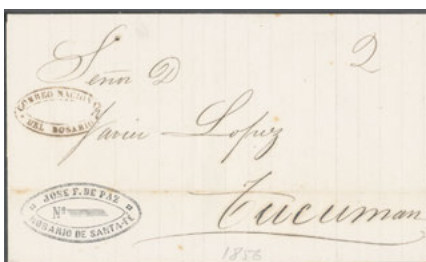 2
Señor D
CORREO NACIONAL
DEL ROSARIO
Javier Lopez
JOSE F. DE PAZ
Nº
ROSARIO DE SANTA-FÉ
Tucuman
1856